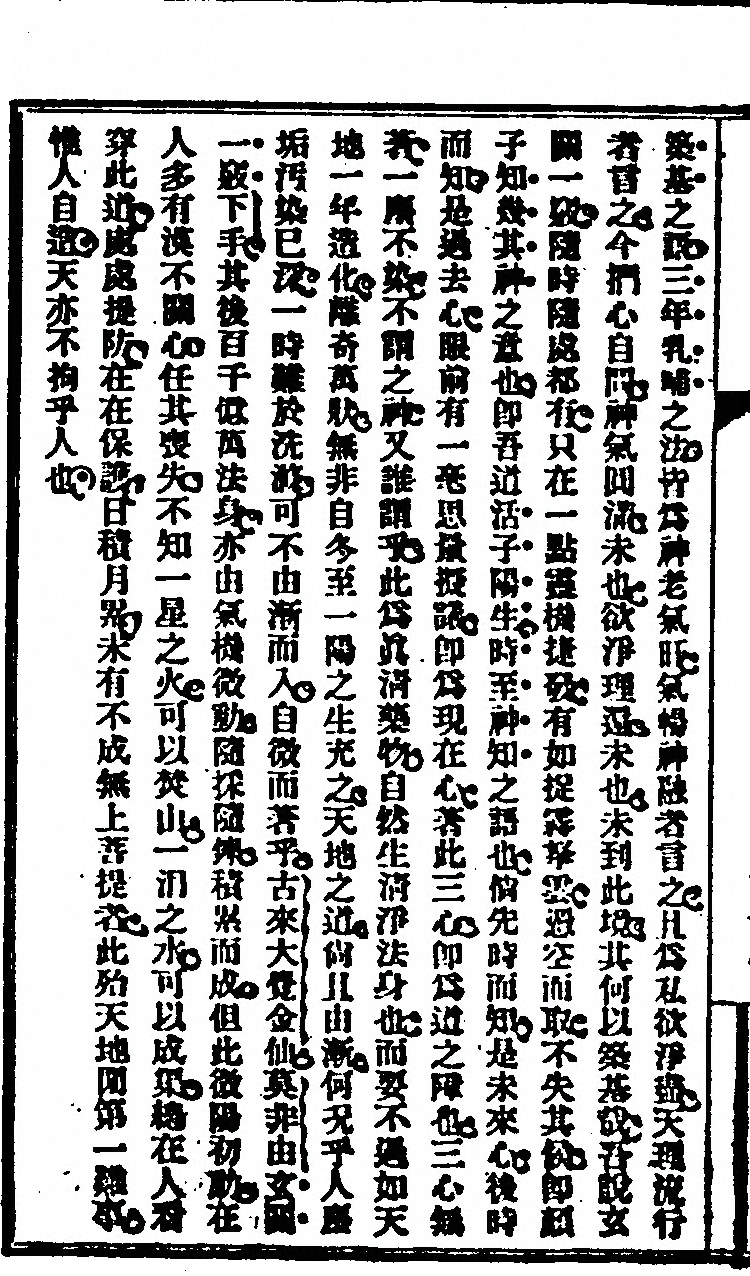 築基之說三年乳哺之法皆爲神老氣旺氣暢神融者言之且爲私欲淨盡天理流行
者言之今捫心自問神氣圓滿未也欲淨理還未也未到此境其何以築基哉吾說玄
關一竅隨時隨處都有只在一點靈機捷發有如捉霧拏雲過空而取不失其候卽顏
子知幾其神之意也卽吾道活子陽生時至神知之語也倘先時而知是未來心後時
而知是過去心眼前有一毫思量擬議卽爲現在心著此三心卽爲道之障也三心無
著一塵不染不謂之神又誰謂乎此爲眞清藥物自然生清淨法身也而要不過如天
地一年造化離奇萬狀無非自冬至一陽之生充之天地之道尙且由漸何况乎人塵
垢污染已深一時難於洗滌可不由漸而入自微而著乎古來大覺金仙莫非由玄關
一竅下手其後百千億萬法身亦由氣機微動隨採隨鍊積累而成但此微陽初動在
人多有漠不關心任其喪失不知一星之火可以焚山一涓之水可以成渠總在人看
穿此道處處提防在在保護日積月累未有不成無上菩提者此殆天地間第一難事
惟人自造天亦不拘乎人也